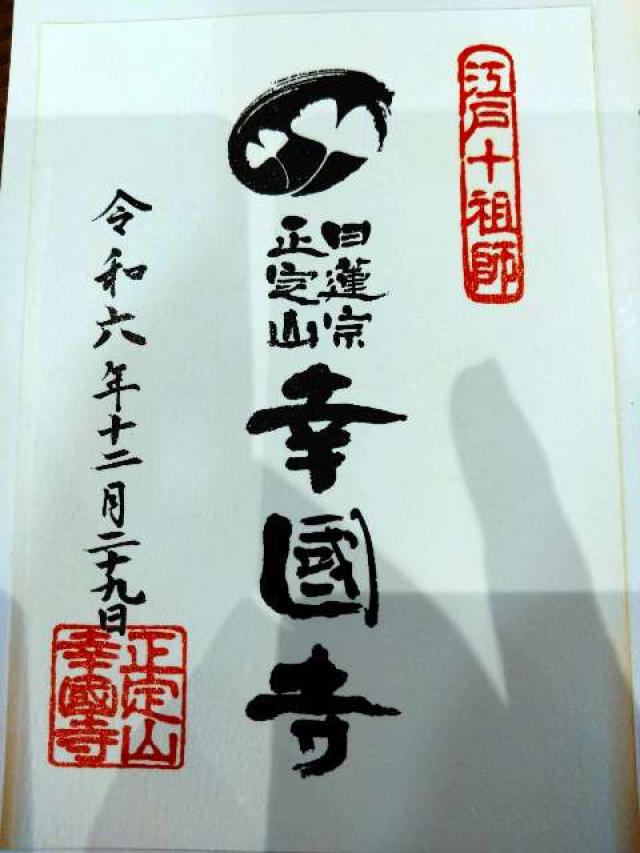 江戸十祖師
日蓮宗
正定山
幸國寺
令和六年十二月二十九日
正定山
幸國寺